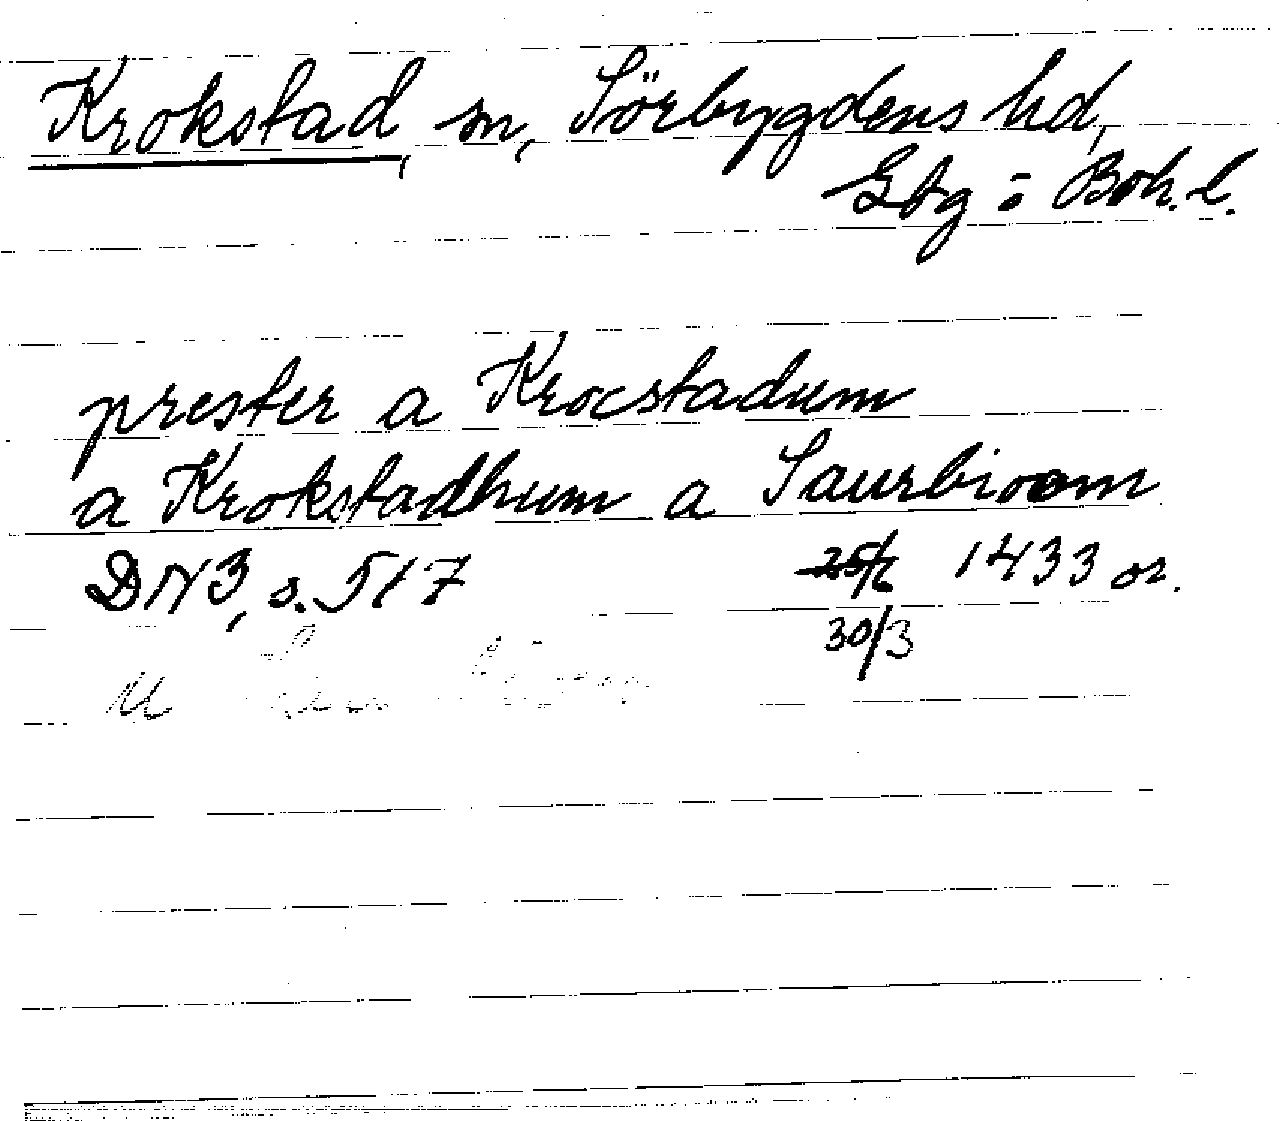 Krokstad, sn, Sörbygdens hd,
Gbg o Boh. l.
prester a Krocstadum
a Krokstadhum a Saurbioom
DN 3, s. 517 25/6 1433 or.
30/3